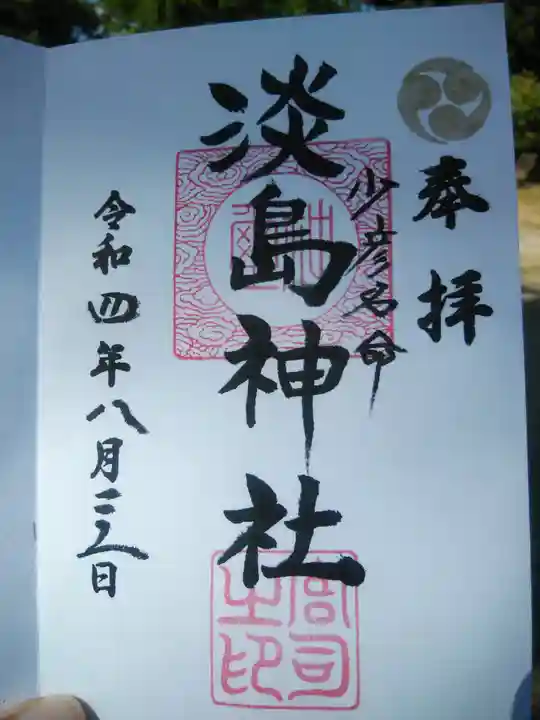 奉拝
少彦名命
淡島神社
宮司之印
令和四年八月二八日